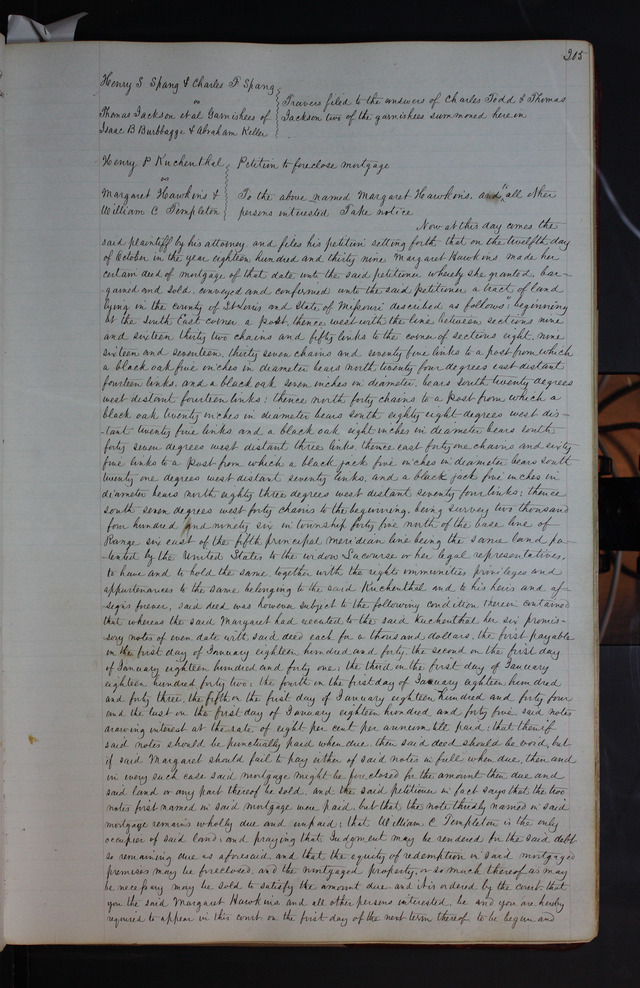 305
Henry S Spang & Charles F Spang
vs
Thomas Jackson et al Garnishees of
Isaac B Burbbagge & Abraham Keller
Travers filed to the answers of Charles Todd & Thomas
Jackson two of the garnishees summoned herein
Henry P Kuchenthal
vs
Margaret Hawkins &
William C Templeton
Petition to foreclose mortgage
To the above named Margaret Hawkins, and all other
persons interested Take notice
Now at this day comes the
said plaintiff by his attorney and files his petition setting forth that on the twelfth day
of October in the year eighteen hundred and thirty nine Margaret Hawkins made her
certain deed of mortgage of that date unto the said petitioner whereby she granted, bar-
gained and sold, conveyed and confirmed unto the said petitioner a tract of land
lying in the county of St Louis and State of Missouri described as follows "beginning
at the South East corner a post, thence west with the line between sections nine
and sixteen thirty two chains and fifty links to the corner of sections eight, nine
sixteen and seventeen, thirty seven chains and seventy five links to a post from which
a black oak five inches in diameter bears north twenty four degrees east distant
fourteen links, and a black oak seven inches in diameter, bears South twenty degrees
west distant fourteen links; thence north forty chains to a post from which a
black oak twenty inches in diameter bears south eighty eight degrees west dis-
tant twenty five links and a black oak eight inches in diameter bears south
forty seven degrees west distant three links, thence east forty one chains and sixty
five links to a post from which a black jack five inches in diameter bears South
twenty one degrees west distant seventy links, and a black jack five inches in
diameter bears north eighty three degrees west distant seventy four links; thence
south seven degrees west forty chains to the beginning, being survey two thousand
four hundred and ninety six in township forty five north of the base line of
Range six east of the fifth principal meridian line being the same land pa-
tented by the United States to the widow Lacourse or her legal representatives,
to have and to hold the same together with the rights immunities privileges and
appurtenances to the same belonging to the said Kuchenthal and to his heirs and as-
signs forever, said deed was however subject to the following condition therein contained
that whereas the said Margaret had executed to the said Kuchenthal her six promis-
sory notes of even date with said deed each for a thousand dollars, the first payable
on the first day of January eighteen hundred and forty, the second on the first day
of January eighteen hundred and forty one; the third on the first day of January
eighteen hundred forty two; the fourth on the first day of January eighteen hundred
and forty three, the fifth on the first day of January eighteen hundred and forty four
and the last on the first day of January eighteen hundred and forty five said notes
drawing interest at the rate of eight per cent per annum till paid: that then if
said notes should be punctually paid when due, then said deed should be void, but
if said Margaret should fail to pay either of said notes in full when due, then and
in every such case said mortgage might be foreclosed for the amount then due and
said land or any part thereof be sold, and the said petitioner in fact says that the two
notes first named in said mortgage were paid, but that the note thirdly named in said
mortgage remains wholly due and unpaid; that William C Templeton is the only
occupier of said land; and praying that Judgment may be rendered for the said debt
so remaining due as aforesaid and that the equity of redemption in said mortgaged
premises may be foreclosed, and the mortgaged property, or so much thereof as may
be necessary may be sold to satisfy the amount due and it is ordered by the court that
you the said Margaret Hawkins and all other persons interested, be and you are hereby
required to appear in this court on the first day of the next term thereof to be begun and